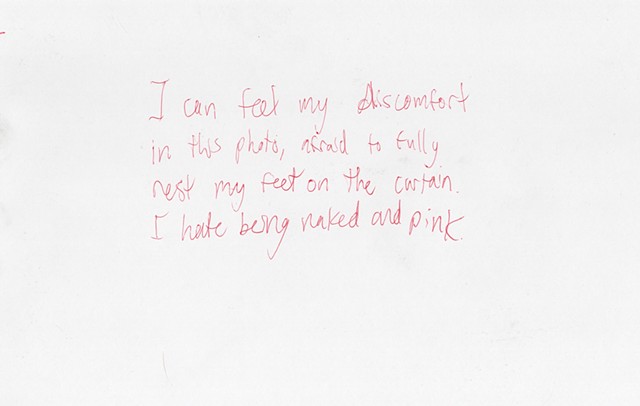 I can feel my discomfort
in this photo, afraid to fully
rest my feet on the curtain.
I hate being naked and pink.